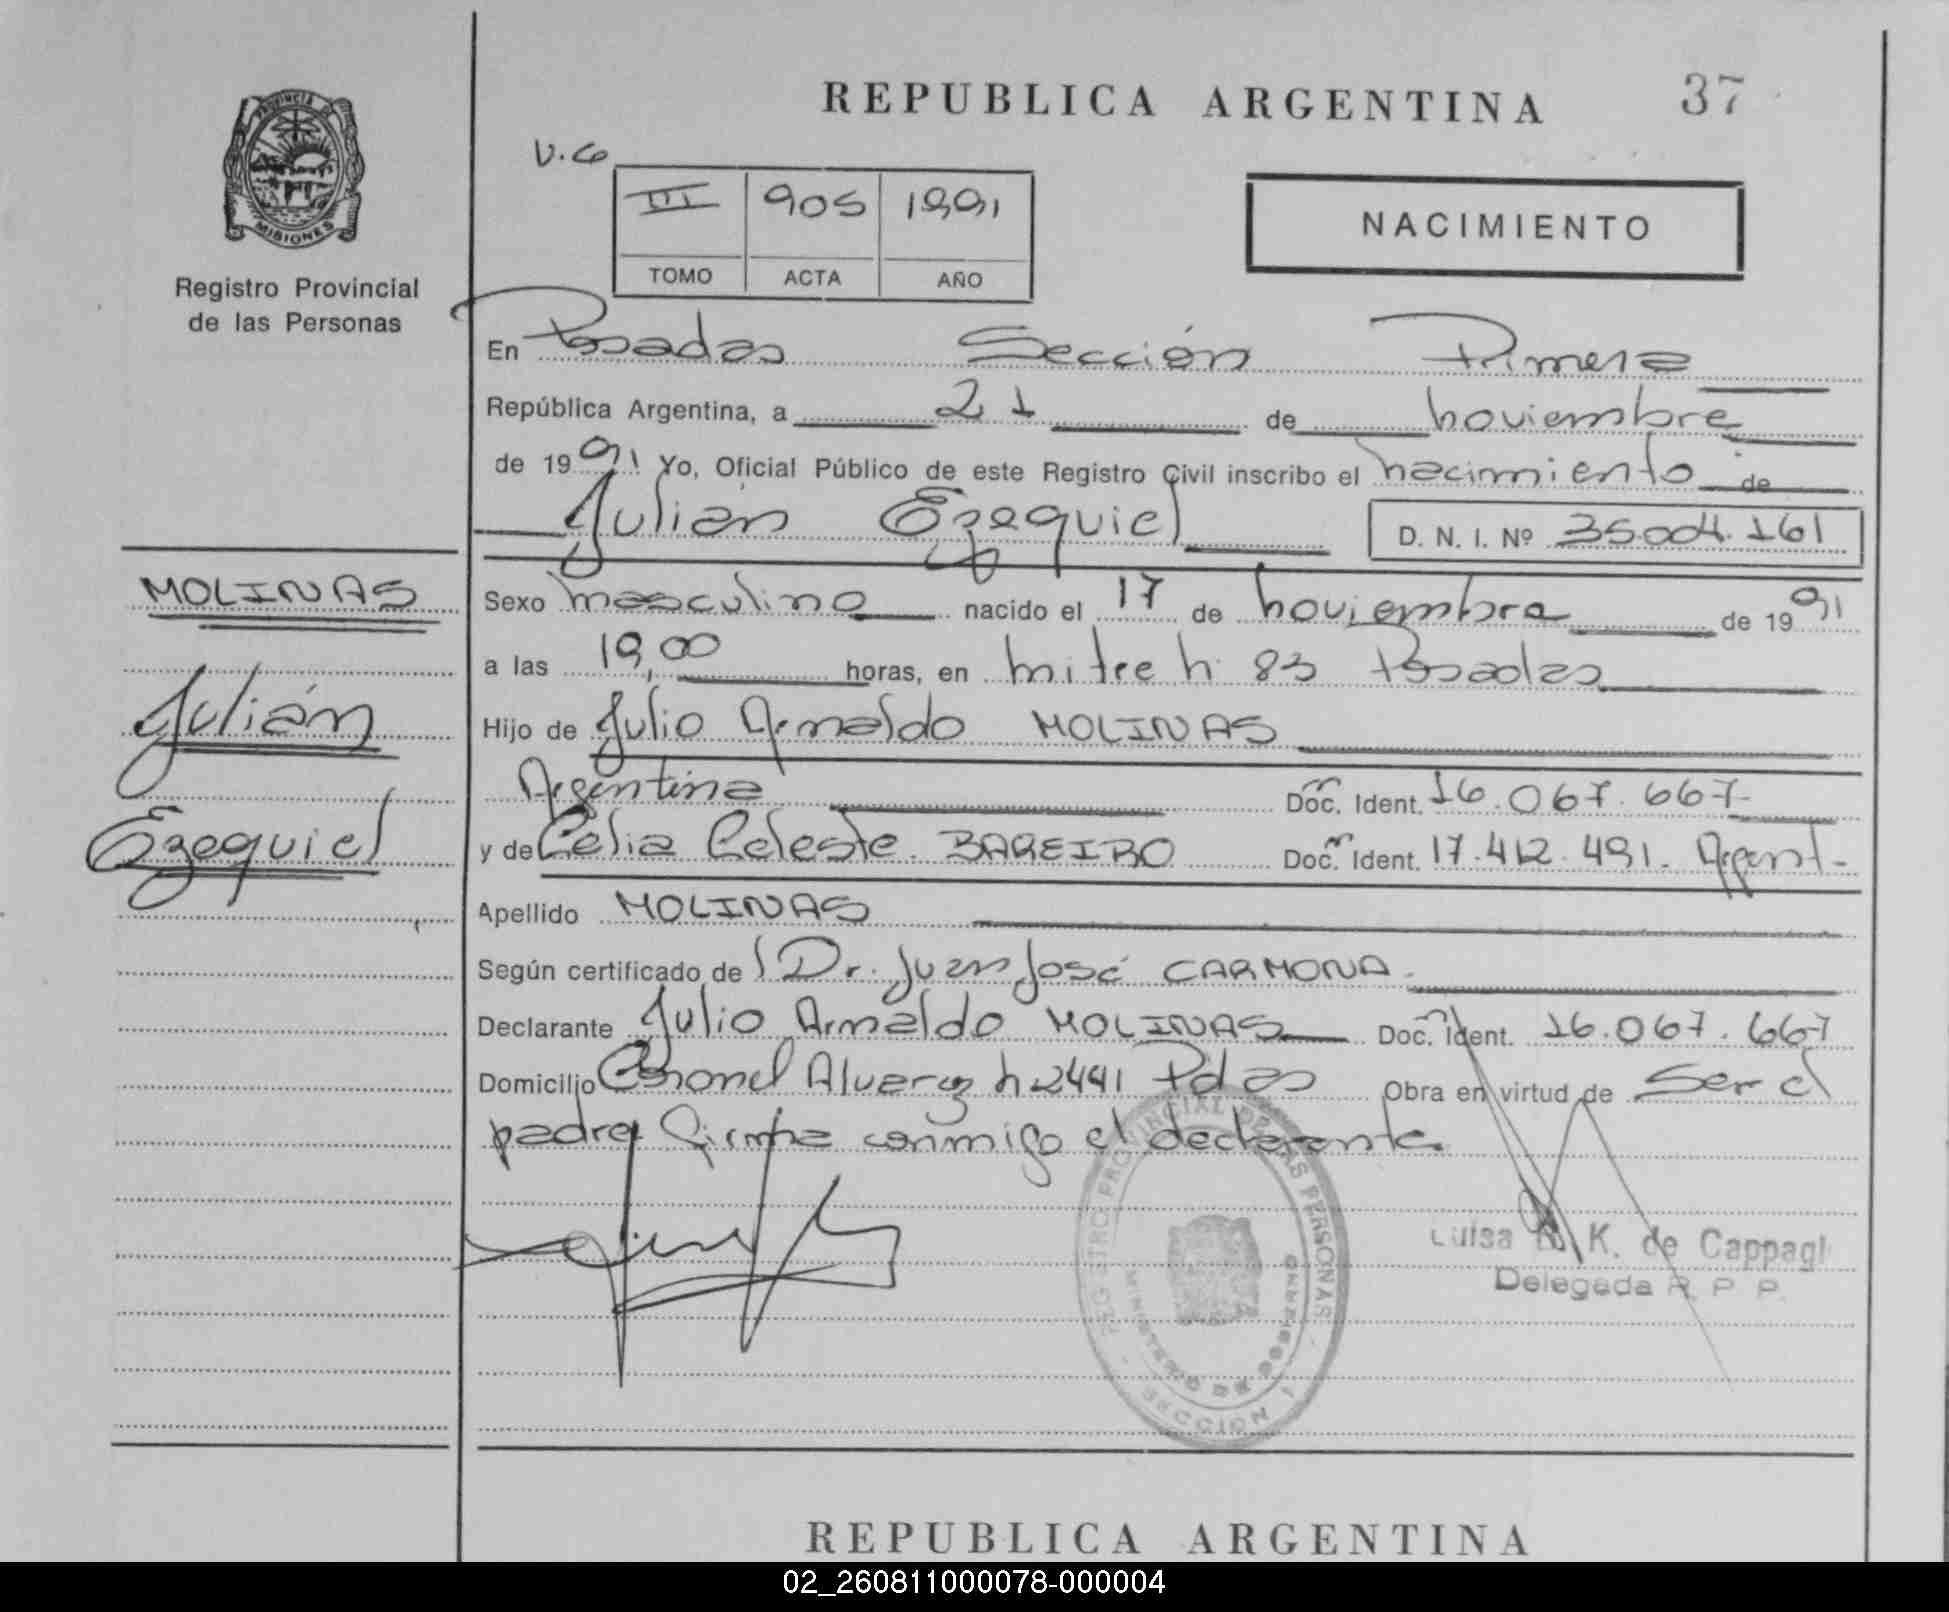 REPUBLICA ARGENTINA
37
PROVINCIA DE
MISIONES
Registro Provincial
de las Personas
V. Co
III 905 1991
TOMO ACTA AÑO
NACIMIENTO
En Posadas Sección Primera
República Argentina, a 21 de noviembre
de 1991 Yo, Oficial Público de este Registro Civil inscribo el nacimiento de
Julián Ezequiel D. N. I. Nº 35.004.161
MOLINAS
Julián
Ezequiel
Sexo masculino nacido el 17 de noviembre de 1991
a las 19,00 horas, en mitre n 83 Posadas
Hijo de Julio Arnaldo MOLINAS
Argentina Doc. Ident. 16.067.667
y de Celia Celeste BAREIRO Doc. Ident. 17.412.491. Argent.
Apellido MOLINAS
Según certificado de Dr. Juan José CARMONA.
Declarante Julio Arnaldo MOLINAS Doc. Ident. 16.067.667
Domicilio Coronel Alvarez n 2441 Pdas Obra en virtud de Ser el
padre firma conmigo el declarante.
REGISTRO PROVINCIAL DE LAS PERSONAS
MINISTERIO DE GOBIERNO
SECCION 1
Luisa K. de Cappagli
Delegada R. P. P.
REPUBLICA ARGENTINA
02_260811000078-000004